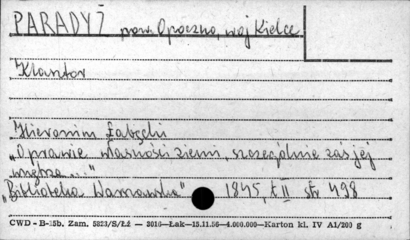 PARADYŻ pow. Opoczno, woj Kielce
Klasztor
Hieronim Łabęcki
"O prawie własności ziemi, szczególnie zaś jej
wnętrza..."
"Biblioteka Warszawska" 1845, t II str 498
CWD - B-15b. Zam. 5823/S/ŁŻ — 3016—Łak—15.11.56—4.000.000—Karton kl. IV A1/200 g